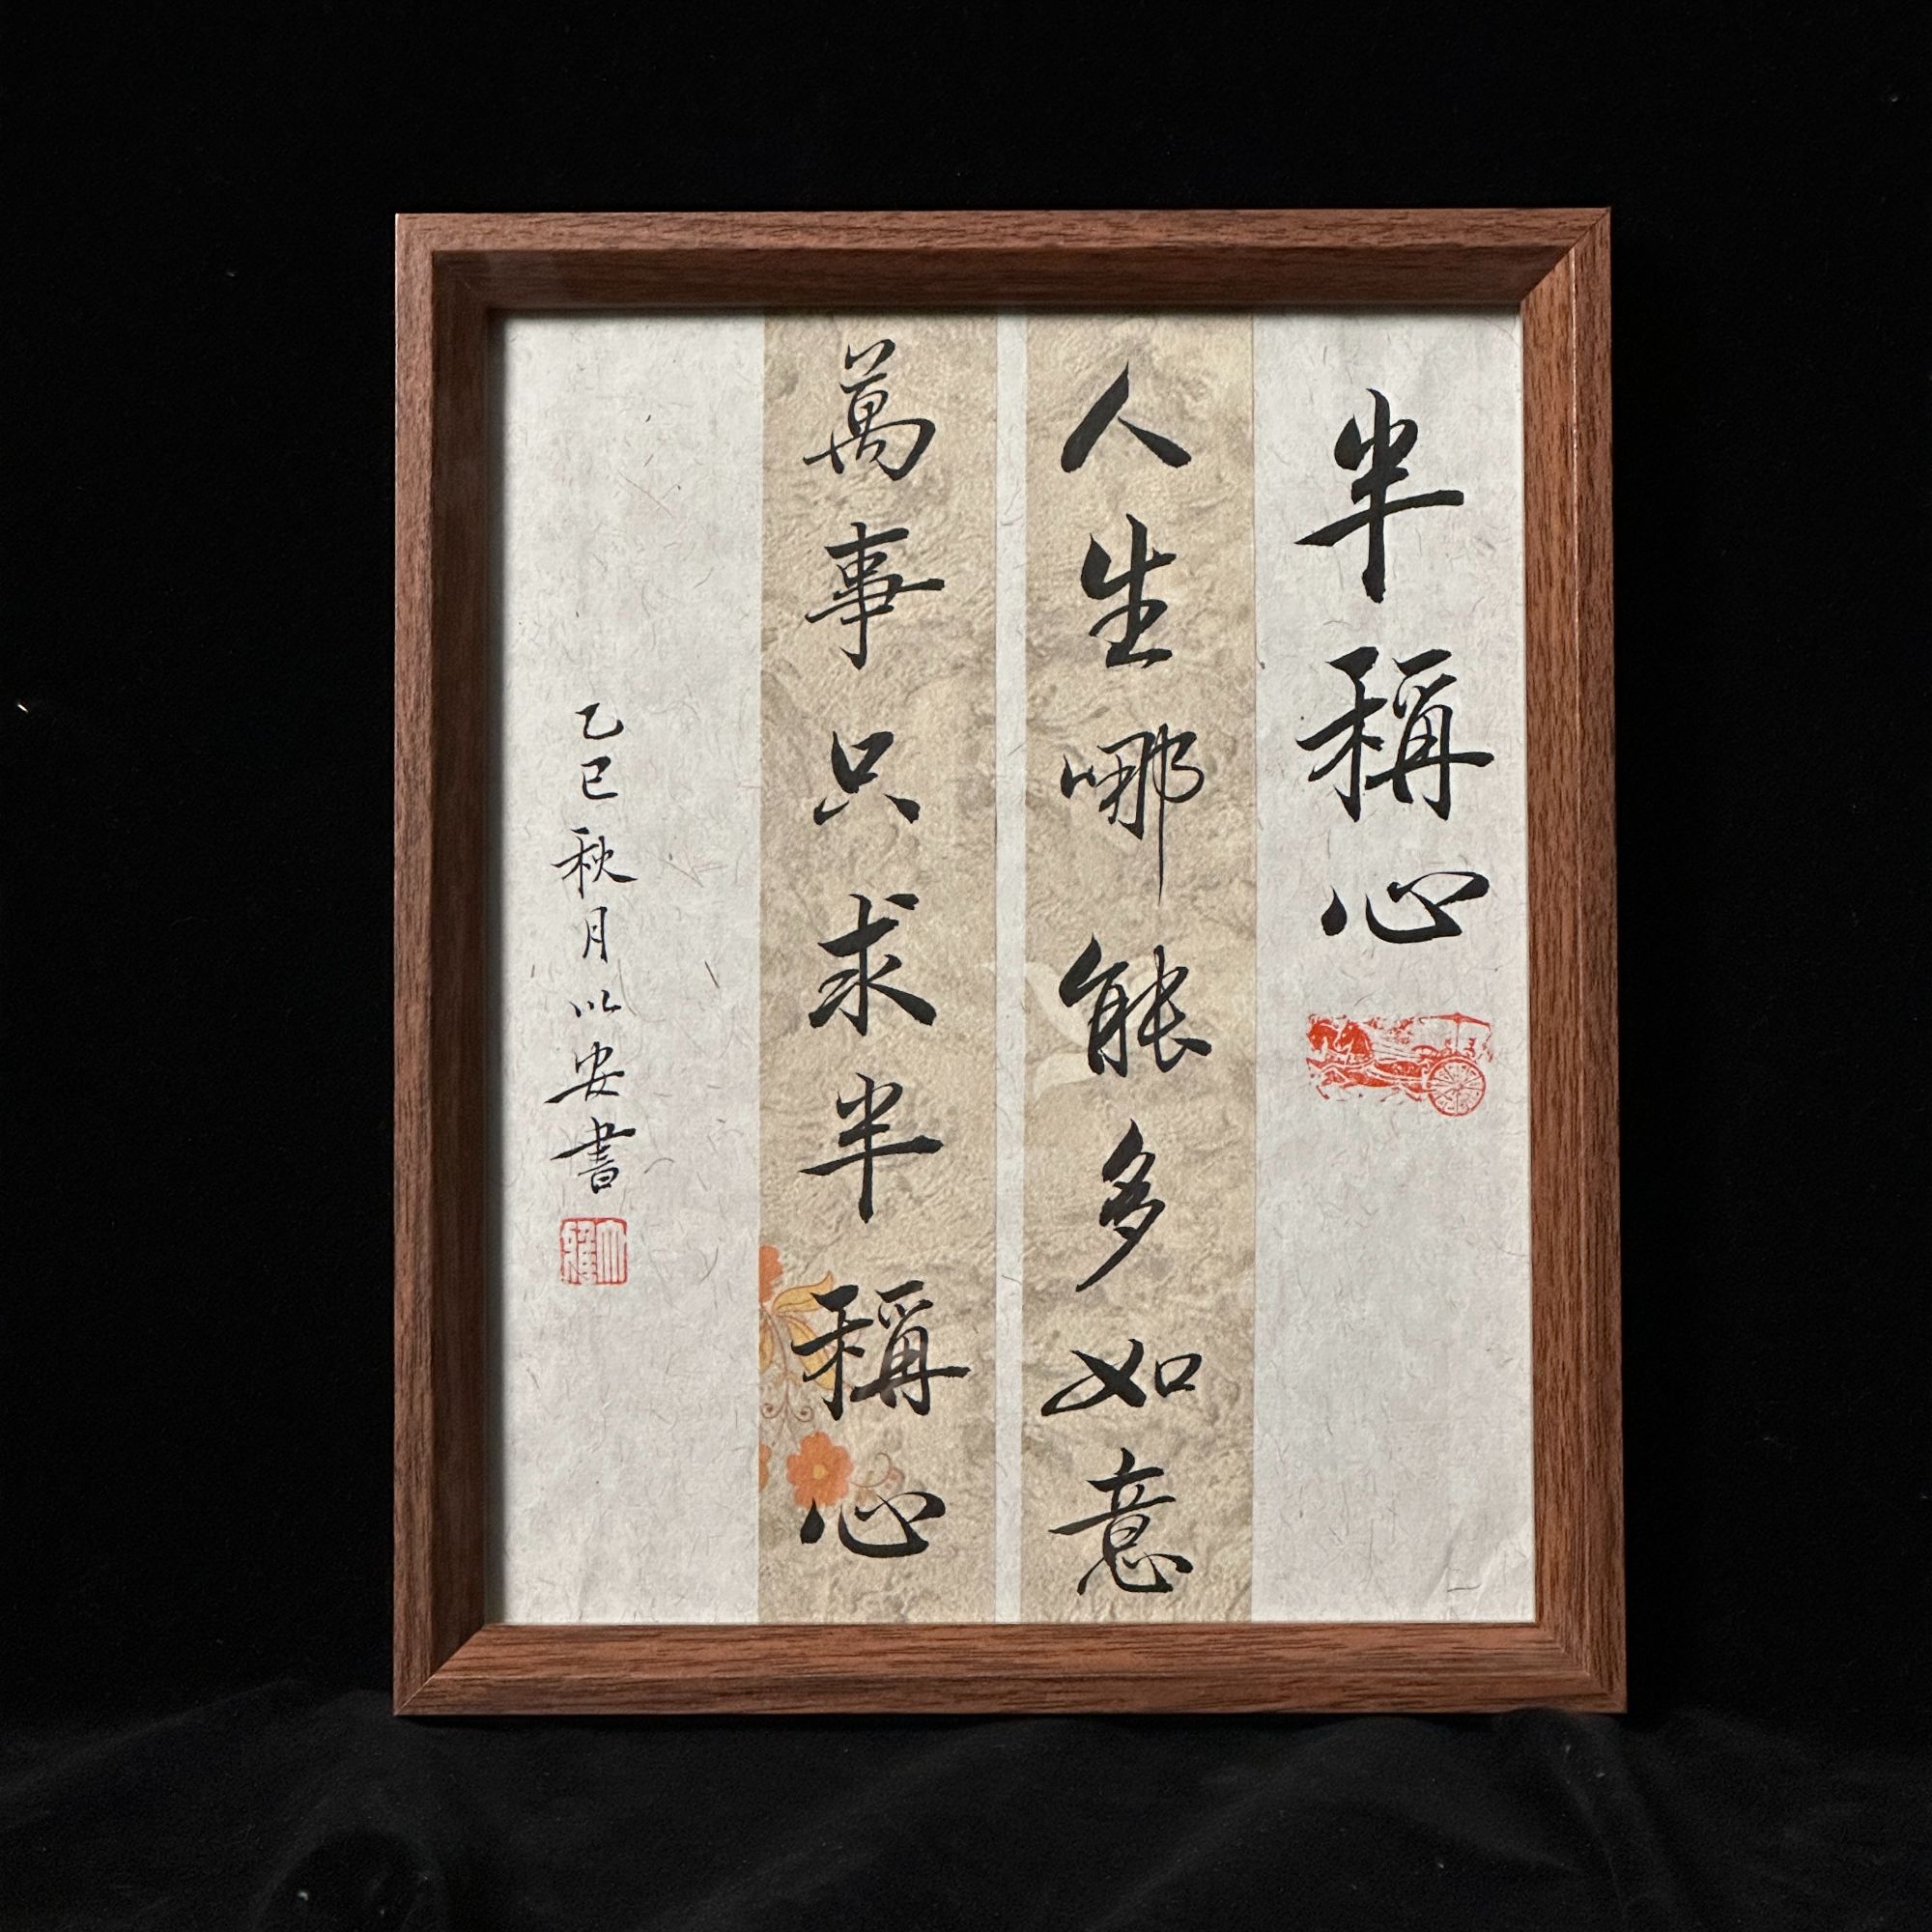 半稱心
人生哪能多如意
萬事只求半稱心
乙巳秋月以安書